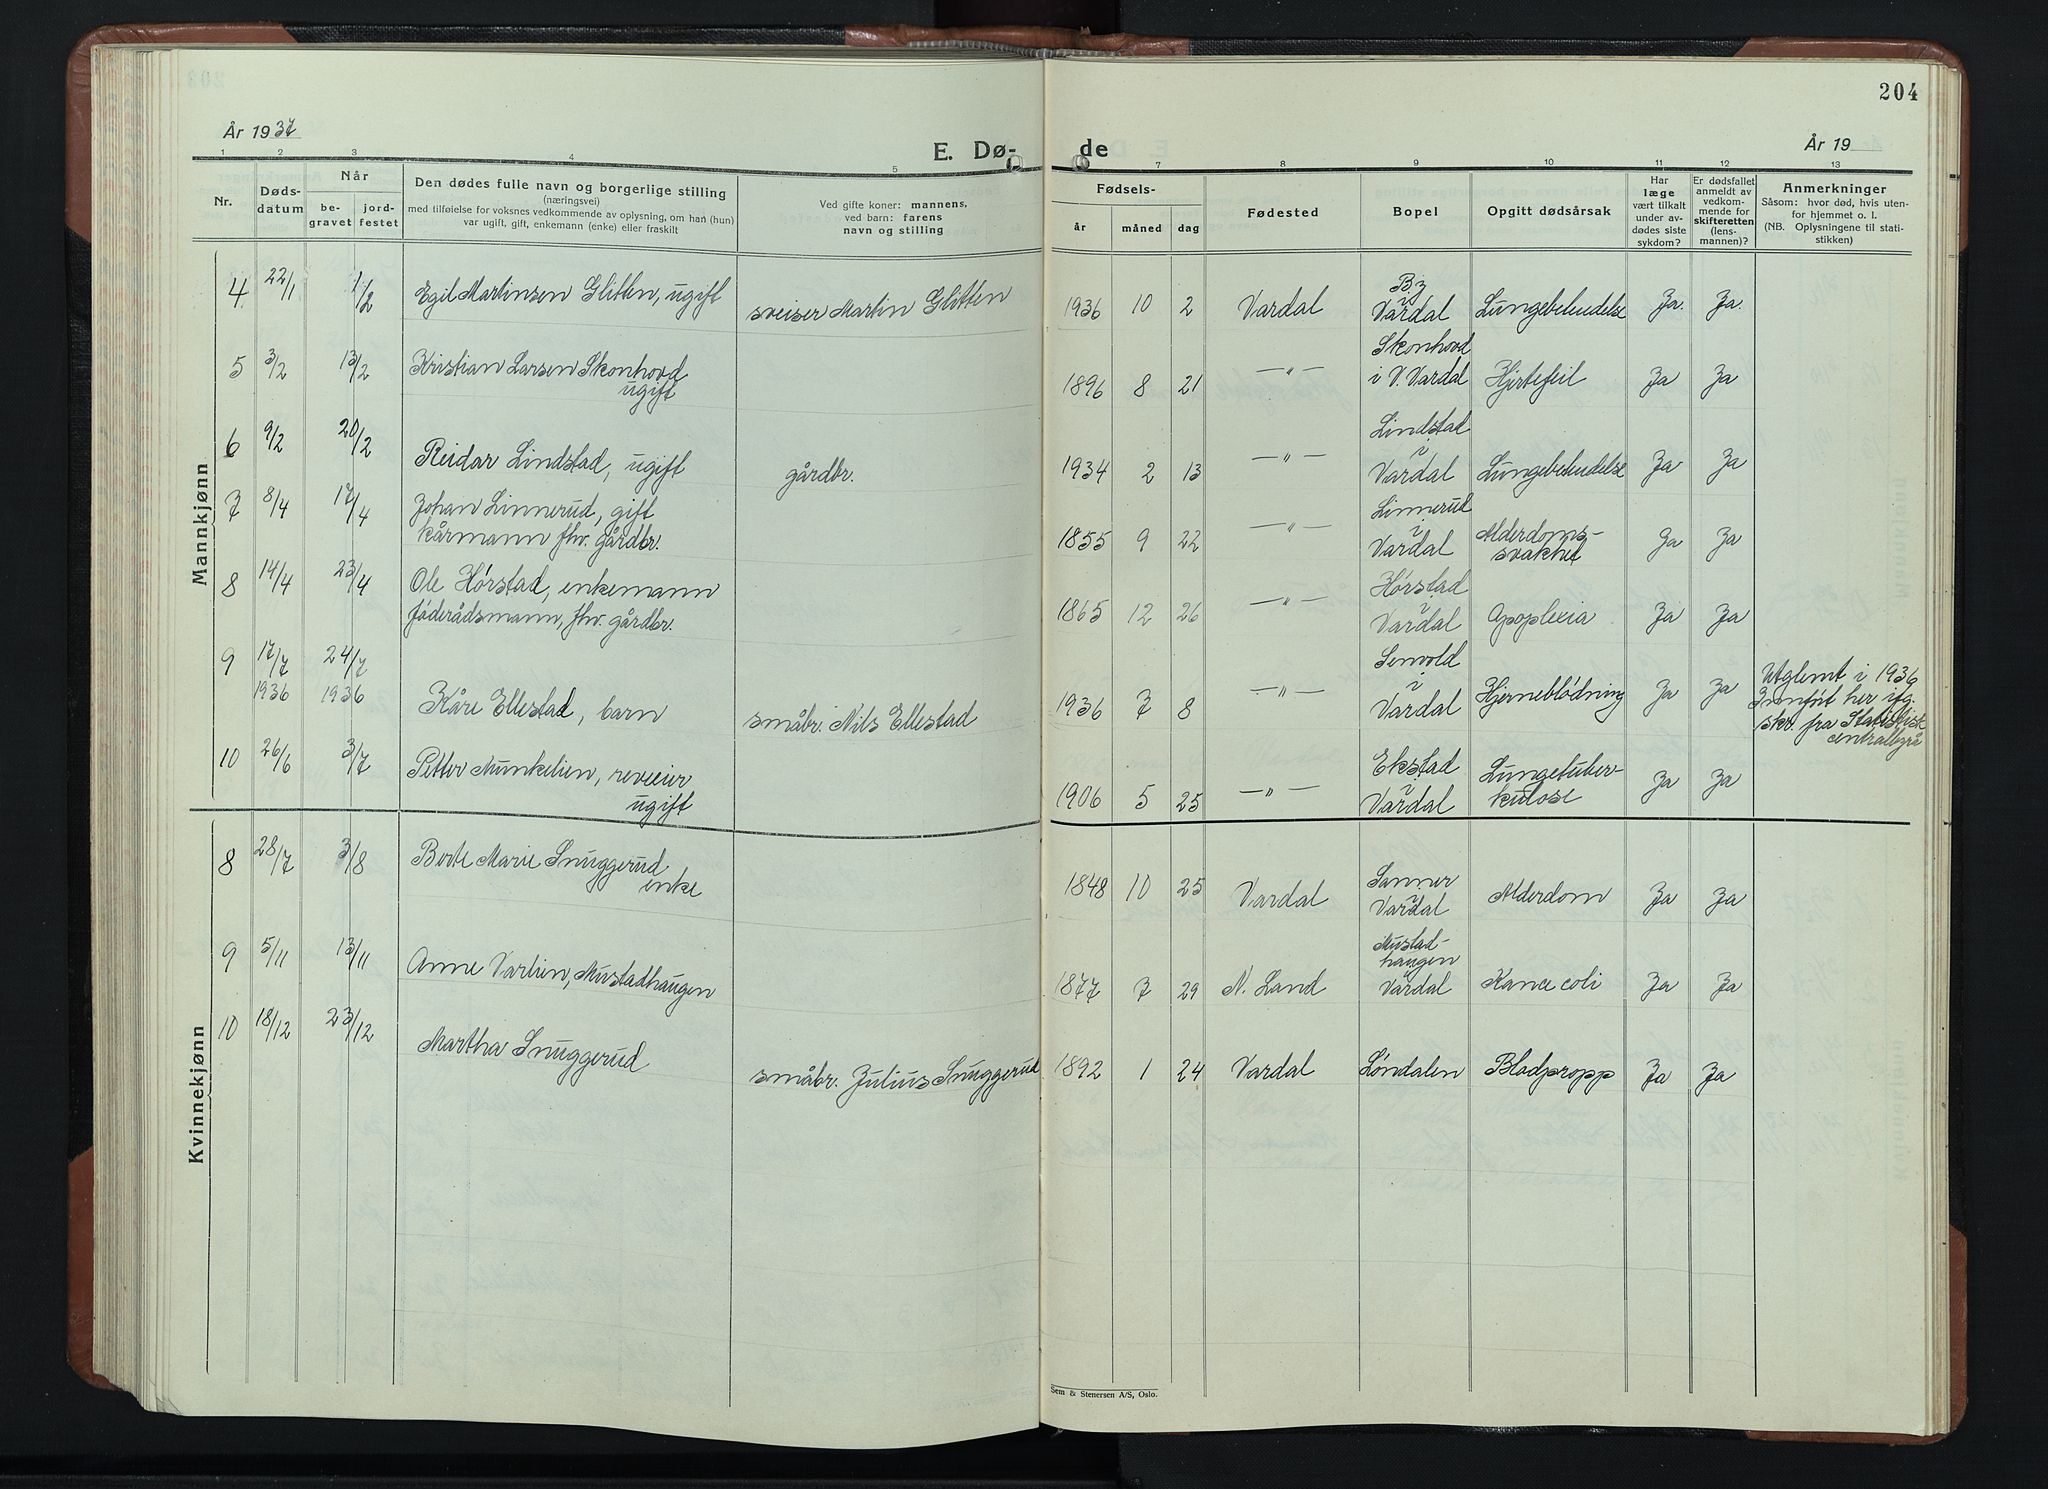 204
År 1937
År 19
E. Dø-
de
1 2 3 4 5
7 8 9 10 11 12 13
Nr.
Døds-
datum
Når
be-
gravet
jord-
festet
Den dødes fulle navn og borgerlige stilling
(næringsvei)
med tilføielse for voksnes vedkommende av oplysning, om han (hun)
var ugift, gift, enkemann (enke) eller fraskilt
Ved gifte koner: mannens,
ved barn: farens
navn og stilling
Fødsels-
år måned dag
Fødested
Bopel
Opgitt dødsårsak
Har
læge
vært tilkalt
under av-
dødes siste
sykdom?
Er dødsfallet
anmeldt av
vedkom-
mende for
skifteretten
(lens-
mannen)?
Anmerkninger
Såsom: hvor død, hvis uten-
for hjemmet o. l.
(NB. Oplysningene til stati-
stikken)
Mannkjønn
4 22/1 1/2 Egil Martinsen Glitten, ugift
sveiser Martin Glitten
By
i
1936 10 2 Vardal Vardal Lungebetendelse Ja. Ja.
5 3/2 13/2 Kristian Larsen Skonhovd
ugift
Skonhovd
1896 8 21 —"— i V. Vardal Hjertefeil Ja Ja
6 9/2 20/2 Reidar Lindstad, ugift
gårdbr.
Lindstad
i
1934 2 13 —"— Vardal Lungebetendelse Ja Ja
7 8/4 17/4 Johan Linnerud, gift
kårmann fhv. gårdbr.
Linnerud
i
1855 9 22 —"— Vardal Alderdoms-
svakhet Ja Ja
8 14/4 23/4 Ole Hørstad, enkemann
føderådsmann, fhv. gårdbr.
Hørstad
i
1865 12 26 —"— Vardal Apoplexia Ja Ja
9 17/7 24/7
1936 1936 Kåre Ellestad, barn
småbr. Nils Ellestad
i
1936 7 8 —"— Vardal Hjerneblødning Ja Ja
Utglemt i 1936
Innført her ifg.
skr. fra Statistisk
centralbyrå
10 26/6 3/7 Petter Munkelien,
ugift
Ekstad
i
1906 5 25 —"— Vardal Lungetuber-
kulose Ja Ja
Kvinnekjønn
8 28/7 3/8 Berte Marie Snuggerud
enke
Sanner
i
1848 10 25 Vardal Vardal Alderdom Ja Ja
9 5/11 13/11 Anne Varlien, Mustadhaugen
Mustad-
haugen
i
1877 7 29 N. Land Vardal Kance coli Ja Ja
10 18/12 23/12 Martha Snuggerud
småbr. Julius Snuggerud
1892 1 24 Vardal Løndalen Blodpropp Ja Ja
Sem & Stenersen A/S, Oslo.